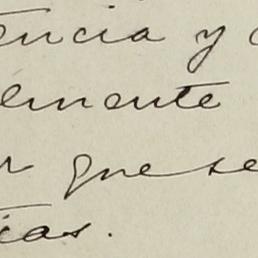 encia y
lmente
que se
ias.